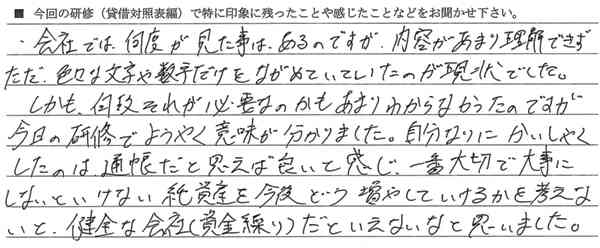 ■ 今回の研修（貸借対照表編）で特に印象に残ったことや感じたことなどをお聞かせ下さい。
・会社では、何度か見た事は、あるのですが、内容があまり理解できず
ただ、色々な文字や数字だけをながめていていたのが現状でした。
しかも、何故それが必要なのかもあまりわからなかったのですが
今日の研修でようやく意味が分かりました。自分なりにかいしゃく
したのは通帳だと思えば良いと感じ、一番大切で大事に
しないといけない純資産を今後どう増やしていけるかを考えな
いと、健全な会社（資金繰り）だといえないなと思いました。